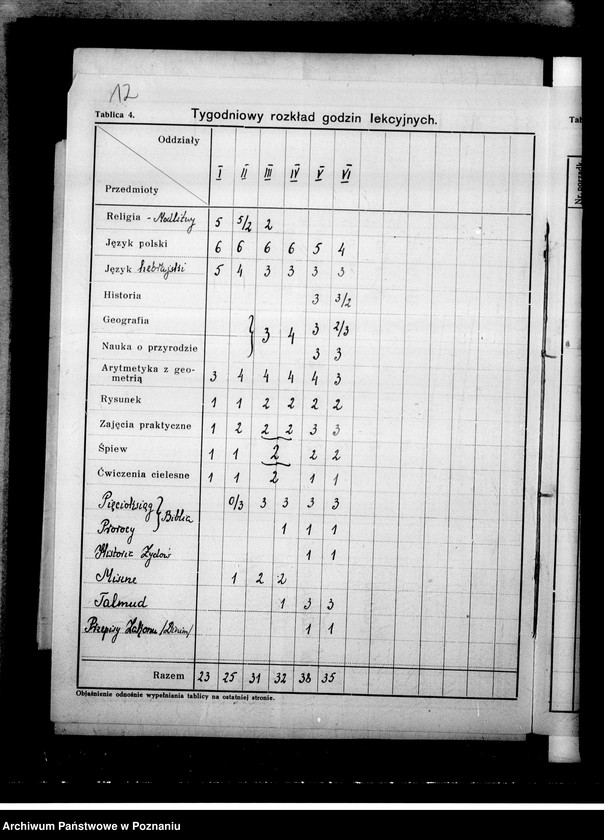 12
Tablica 4. Tygodniowy rozkład godzin lekcyjnych.
Oddziały
Przedmioty I II III IV V VI
Religia - Modlitwy 5 5/2 2
Język polski 6 6 6 6 5 4
Język hebrajski 5 4 3 3 3 3
Historia 3 3/2
Geografia 3 4 3 2/3
Nauka o przyrodzie 3 3
Arytmetyka z geo-
metrią 3 4 4 4 4 3
Rysunek 1 1 2 2 2 2
Zajęcia praktyczne 1 2 2 2 3 3
Śpiew 1 1 2 2 2
Ćwiczenia cielesne 1 1 2 1 1
Pięcioksiąg } Biblia 0/3 3 3 3 3
Prorocy 1 1 1
Historia Żydów 1 1
Miszne 1 2 2
Talmud 1 3 3
Przepisy Zakonu /Dinim/ 1 1
Razem 23 25 31 32 38 35
Objaśnienie odnośnie wypełniania tablicy na ostatniej stronie.
Tab
Nr. porządk.
Archiwum Państwowe w Poznaniu